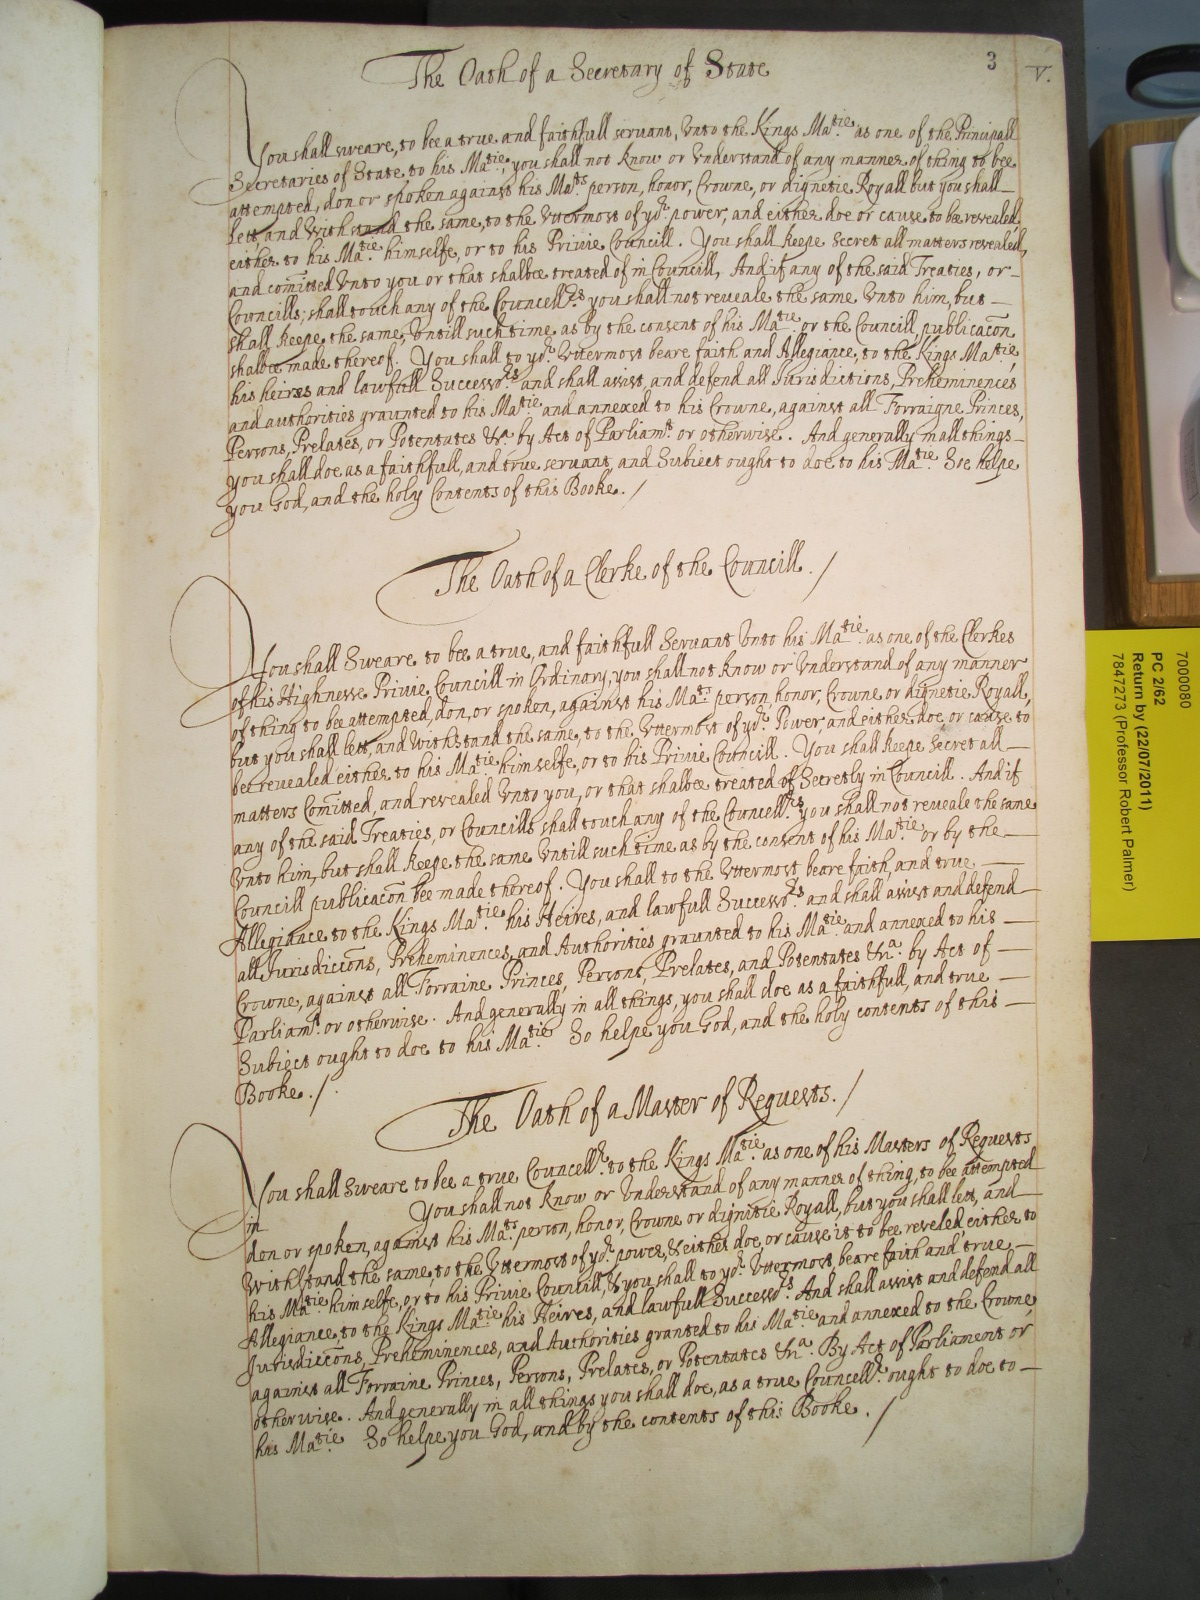 The Oath of a Secretary of State
3
V.
You shall sweare, to bee a true and faithfull servant, Vnto the Kings Ma:tie as one of the Principall
Secretaries of State to his Ma:tie, you shall not know or Vnderstand of any manner of thing to bee
attempted, don or spoken against his Ma:ts person, honor, Crowne, or dignetie Royall but you shall
Lett, and Withstand the same, to the Vttermost of yor. power, and either doe or cause to be revealed,
either to his Ma:tie himselfe, or to his Privie Councill. You shall keepe Secret all matters revealed,
and comitted Vnto you or that shalbee treated of in Councill, And if any of the said Treaties, or
Councills; shall touch any of the Councellors. you shall not reveale the same Vnto him, but
shall keepe the same, Vntill such time as by the consent of his Ma:tie or the Councill, publicacon
shalbee made thereof. You shall to yor. Vttermost beare faith and Allegiance, to the Kings Ma:tie
his heires and lawfull Successors. and shall assist, and defend all Jurisdictions, Preheminences
and authorities graunted to his Ma:tie and annexed to his Crowne, against all Forraigne Princes,
Persons, Prelates, or Potentates &ca. by Act of Parliamt. or otherwise. And generally in all things
you shall doe as a faithfull, and true servant, and Subiect ought to doe to his Ma:tie. Soe helpe
you God, and the holy Contents of this Booke./
The Oath of a Clerke of the Councill./
You shall Sweare to bee a true, and faithfull Servant Vnto his Ma:tie. as one of the Clerkes
of his Highnesse Privie Councill in Ordinary, you shall not know or Vnderstand of any manner
of thing to bee attempted, don, or spoken, against his Ma:ts person, honor, Crowne or dignetie Royall,
but you shall lett, and Withstand the same, to the Vttermost of yor. Power, and either doe, or cause to
bee revealed either to his Ma:tie himselfe, or to his Privie Councill. You shall keepe Secret all
matters Comitted, and revealed Vnto you, or that shalbee treated of Secretly in Councill. And if
any of the said Treaties, or Councills shall touch any of the Councellors. you shall not reveale the same
Vnto him, but shall keepe the same Vntill such time as by the consent of his Ma:tie or by the
Councill publicacon bee made thereof. You shall to the Vttermost beare faith, and true
Allegiance to the Kings Ma:tie his Heires, and lawfull Successors. and shall assist and defend
all Jurisdiccons, Preheminences, and Authorities graunted to his Ma:tie and annexed to his
Crowne, against all Forraine Princes, Persons, Prelates, and Potentates &ca. by Act of
Parliamt. or otherwise. And generally in all things, you shall doe as a faithfull, and true
Subiect ought to doe to his Ma:tie So helpe you God, and the holy contents of this
Booke./
The Oath of a Master of Requests./
You shall Sweare to bee a true, Councellor. to the Kings Ma:tie. as one of his Masters of Requests
in You shall not know or Vnderstand of any manner of thing, to bee attempted
don or spoken, against his Ma:ts person, honor, Crowne or dignitie Royall, but you shall lett, and
Withstand the same, to the Vttermost of yor. power, & either doe, or cause it to bee reveled either to
his Ma:tie himselfe, or to his Privie Councill, & you shall to yor. Vttermost, beare faith and true
Allegiance, to the Kings Ma:tie his Heires, and lawfull Successors. And shall assist and defend all
Jurisdiccons, Preheminences, and Authorities granted to his Ma:tie and annexed to the Crowne,
against all Forraine Princes, Persons, Prelates, or Potentates &ca. By Act of Parliament or
otherwise. And generally in all things you shall doe, as a true Councellor. ought to doe to
his Ma:tie So helpe you God, and by the contents of this Booke./
7000080
PC 2/62
Return by (22/07/2011)
7847273 (Professor Robert Palmer)